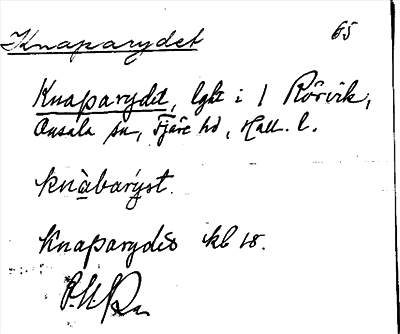 Knaparydet 65
Knaparydet, lght i 1 Rörvik,
Onsala sn, Fjäre hd, Hall. l.
knàbarýst.
Knaparydes kb 18.